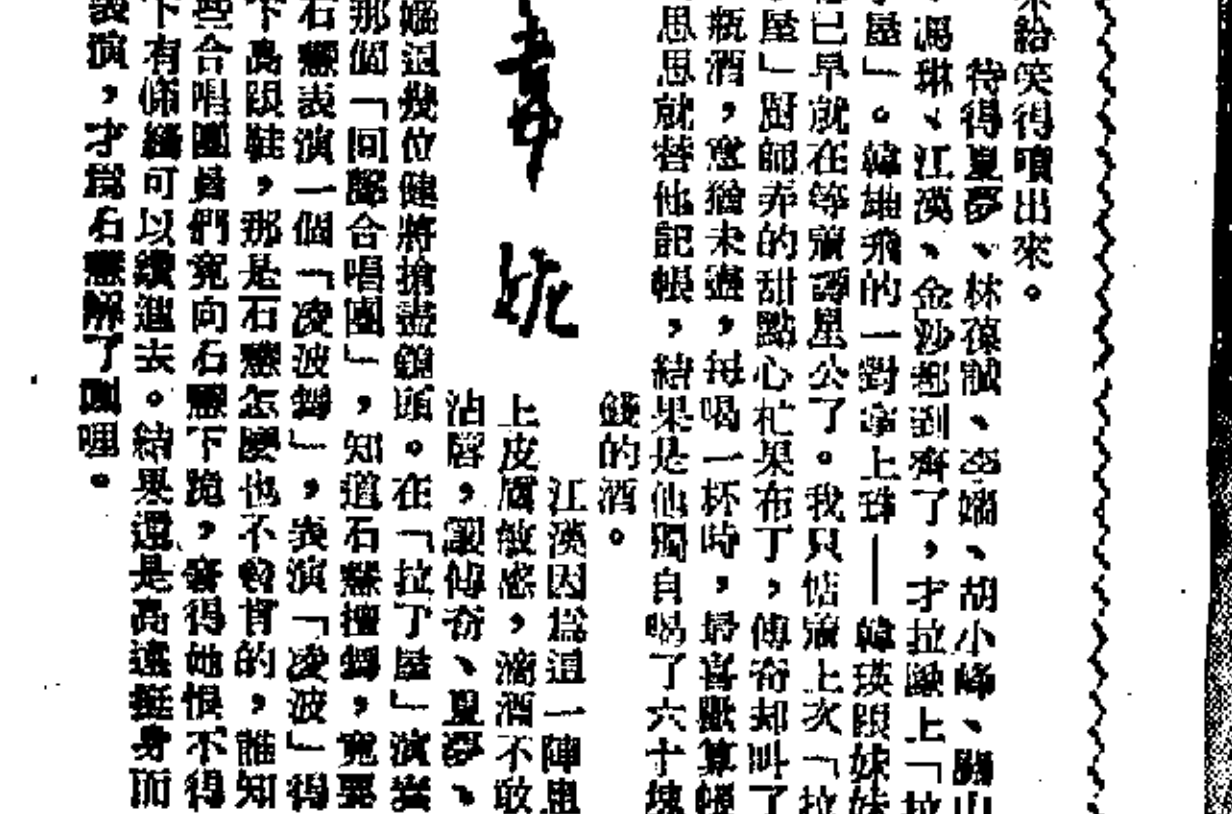 給笑得噴出來。
待得夏夢、林葆誠、李嬙、胡小峰、關山
馮琳、江漢、金沙都到齊了,才拉隊上「拉
屋」。韓雄飛的一對掌上珠——韓瑛跟妹妹
已早就在等着譚星公了。我只惦着上次「拉
屋」厨師弄的甜點心杧果布丁,傅奇却叫了
瓶酒,意猶未盡,每喝一杯時,最喜歡算
思思就替他記帳,結果是他獨自喝了六十塊
錢的酒。
江漢因爲這一陣患
上皮膚敏感,滴酒不敢
沾唇,讓傅奇、夏夢、
嬙這幾位健將搶盡鏡頭。在「拉丁屋」演
那個「回聲合唱團」,知道石慧擅舞,竟要
石慧表演一個「凌波舞」,表演「凌波」得
下高跟鞋,那是石慧怎麼也不會肯的,誰知
些合唱團員們竟向石慧下跪,害得她恨不得
下有條縫可以鑽進去。結果還是高遠挺身而
表演,才爲石慧解了圍哩。